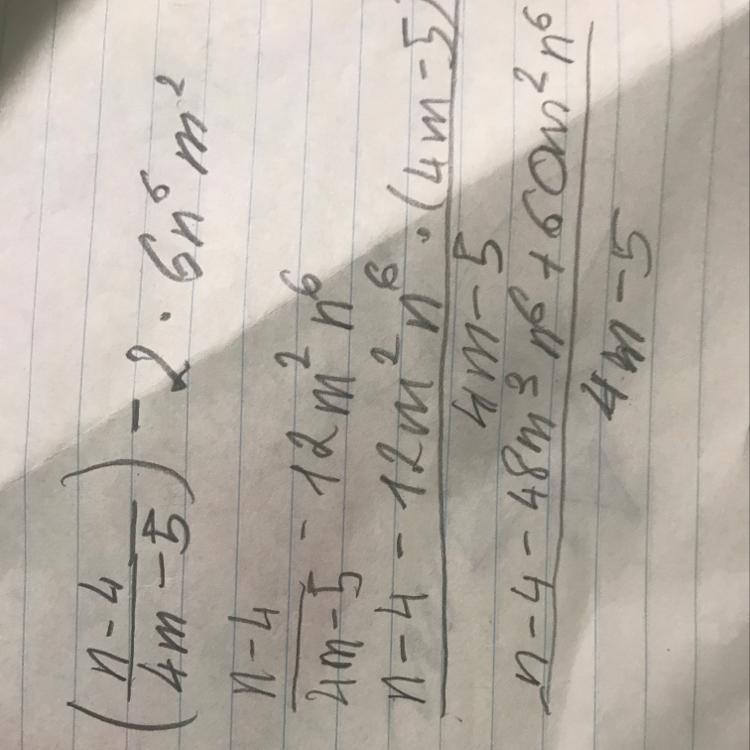 (n-4/4m-5) - 2 · 6n⁶m²
n-4/4m-5 - 12m²n⁶
n-4-12m²n⁶·(4m-5)
4m-5
n-4-48m³n⁶+60m²n⁶
4m-5